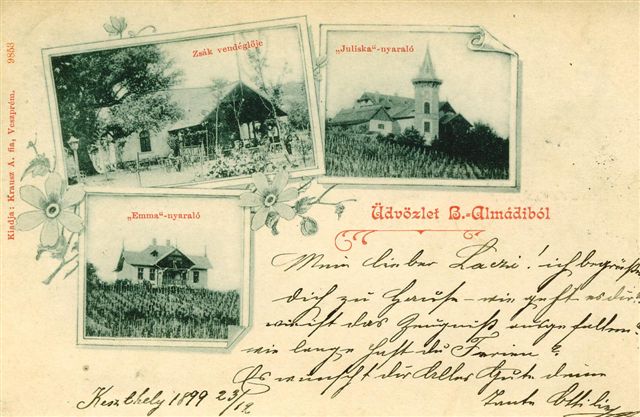 Zsák vendéglője
„Juliska“-nyaraló
„Emma“-nyaraló
Kiadja: Krausz A. fia, Veszprém. 9853
Üdvözlet B.-Almádiból
Mein lieber Laczi! ich begrüße
dich zu Hause – wie geht es dir?
wie ist das Zeugniß ausgefallen?
wie lange hast du Ferien?
Es wünscht dir Alles Gute deine
Tante Ottilie
Keszthely 1899 23/12